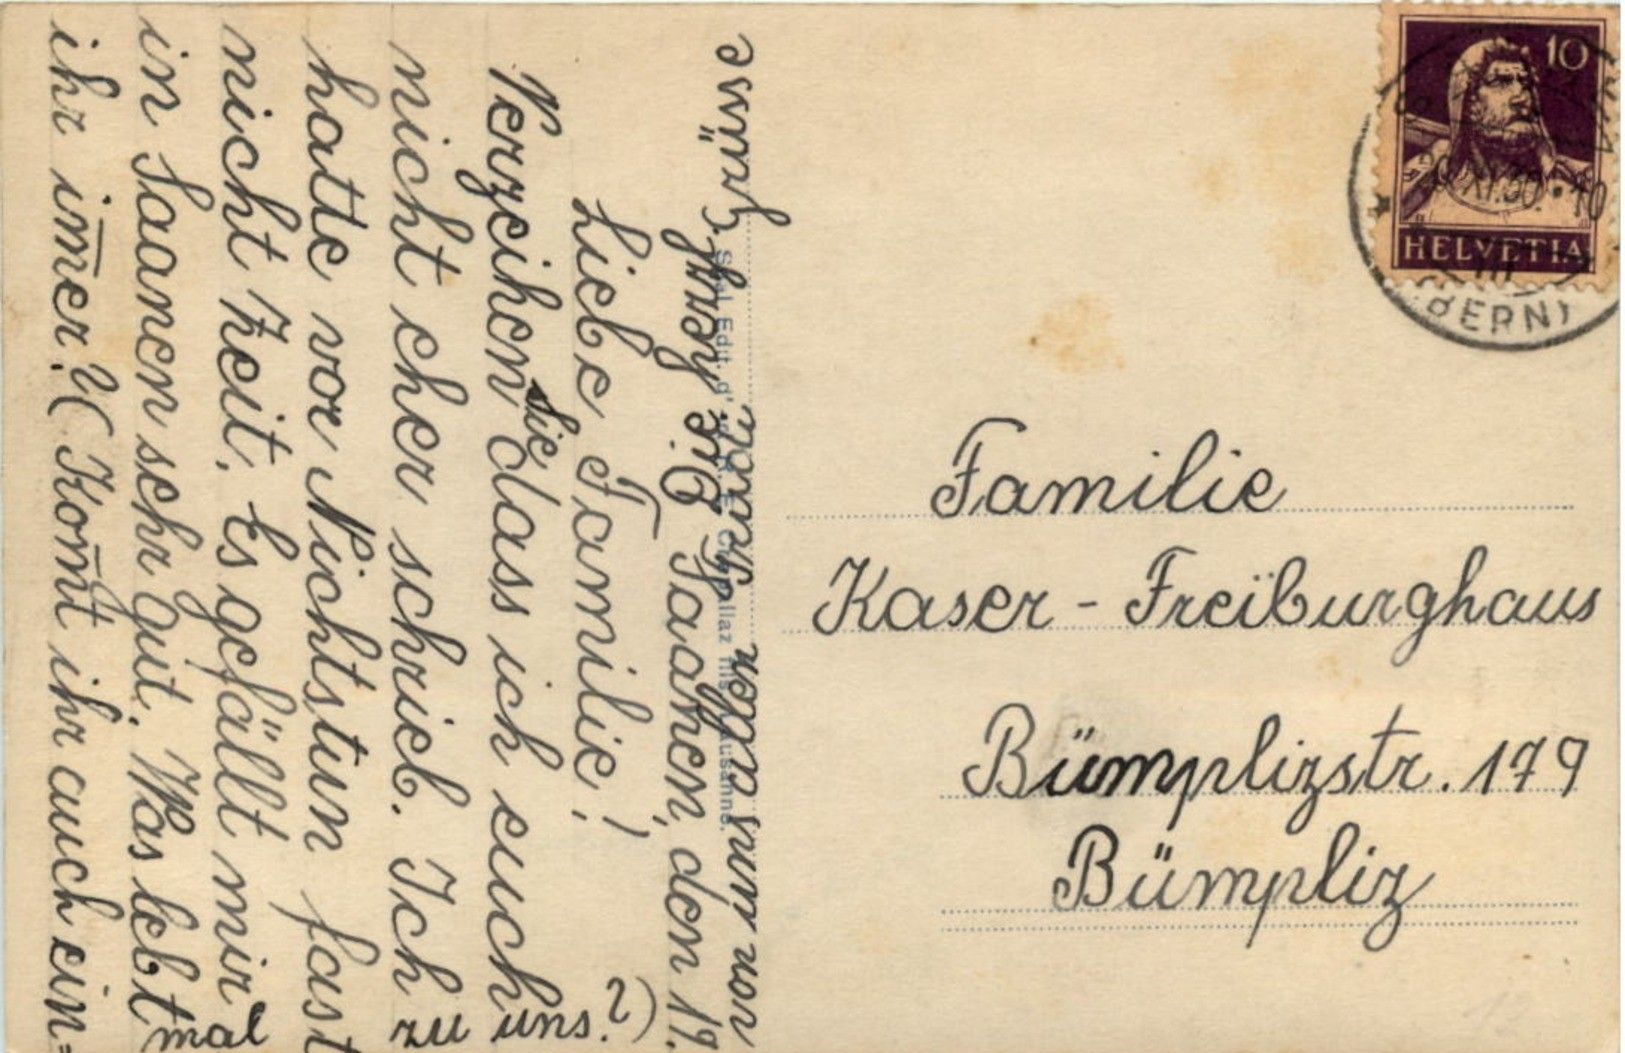 Frey z. Z. Saanen, den 19.
Liebe Familie!
Verzeihen Sie, dass ich euch
nicht eher schrieb. Ich
hatte vor Nichtstun fast
nicht Zeit. Es gefällt mir
in Saanen sehr gut. Was lebt
ihr im̄er? (Kom̄t ihr auch ein=
mal zu uns?)
Grüsse
von uns allen Trudi
10
HELVETIA
20.XI.30.-10
(BERN)
Familie
Kaser - Freiburghaus
Bümplizstr. 179
Bümpliz